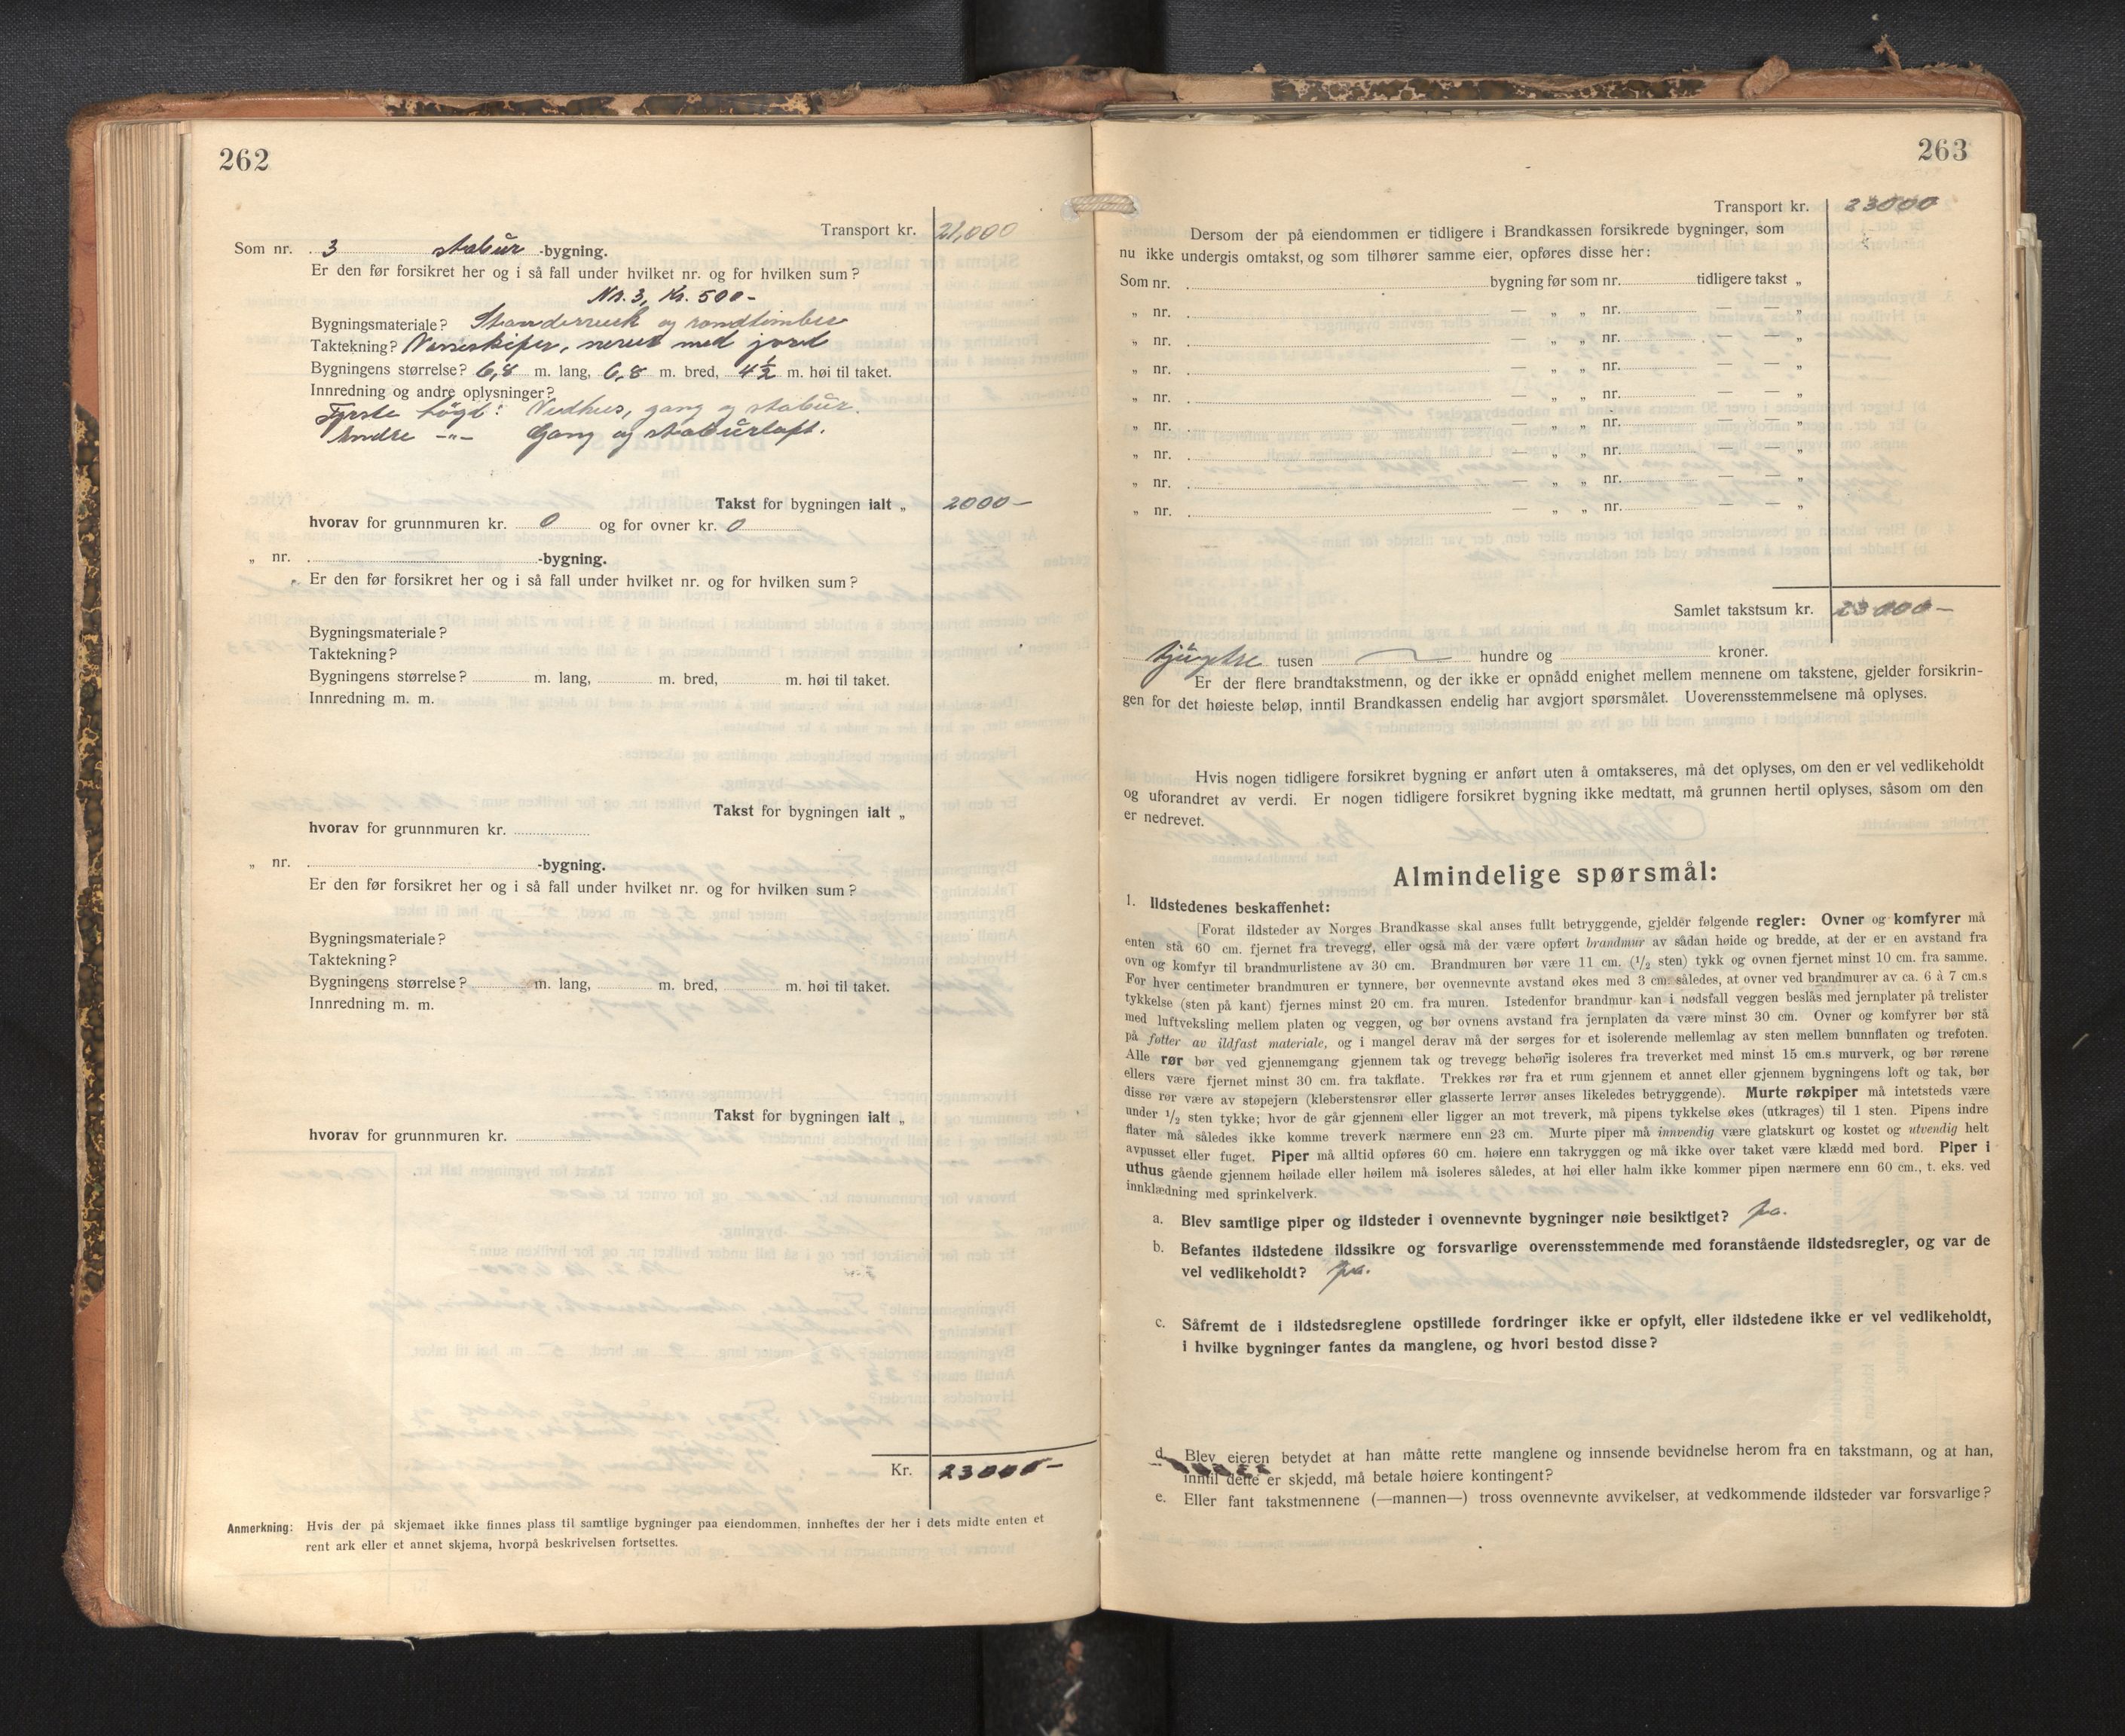 262
Transport kr. 21,000
Som nr. 3 stabur -bygning.
Er den før forsikret her og i så fall under hvilket nr. og for hvilken sum?
Nr. 3, Kr. 500-
Bygningsmateriale? Standerverk og rundtimber
Taktekning? med jord
Bygningens størrelse? 6,8 m. lang, 6,8 m. bred, 4½ m. høi til taket.
Innredning og andre oplysninger?
Fyrste högd: Vedhus, gang og stabur.
Andre -"- Gang og staburloft.
Takst for bygningen ialt „ 2000-
hvorav for grunnmuren kr. 0 og for ovner kr. 0
„ nr. -bygning.
Er den før forsikret her og i så fall under hvilket nr. og for hvilken sum?
Bygningsmateriale?
Taktekning?
Bygningens størrelse? m. lang, m. bred, m. høi til taket.
Innredning m. m.
Takst for bygningen ialt „
hvorav for grunnmuren kr.
„ nr. -bygning.
Er den før forsikret her og i så fall under hvilket nr. og for hvilken sum?
Bygningsmateriale?
Taktekning?
Bygningens størrelse? m. lang, m. bred, m. høi til taket.
Innredning m. m.
Takst for bygningen ialt „
hvorav for grunnmuren kr.
Kr. 23000-
Anmerkning: Hvis der på skjemaet ikke finnes plass til samtlige bygninger paa eiendommen, innheftes der her i dets midte enten et
rent ark eller et annet skjema, hvorpå beskrivelsen fortsettes.
263
Transport kr. 23000
Dersom der på eiendommen er tidligere i Brandkassen forsikrede bygninger, som
nu ikke undergis omtakst, og som tilhører samme eier, opføres disse her:
Som nr. bygning før som nr. tidligere takst „
„ nr. — „ „ nr. — — „
„ nr. — „ „ nr. — — „
„ nr. — „ „ nr. — — „
„ nr. — „ „ nr. — — „
„ nr. — „ „ nr. — — „
„ nr. — „ „ nr. — — „
„ nr. — „ „ nr. — — „
„ nr. — „ „ nr. — — „
Samlet takstsum kr. 23000-
tjugtre tusen hundre og kroner.
Er der flere brandtakstmenn, og der ikke er opnådd enighet mellem mennene om takstene, gjelder forsikrin-
gen for det høieste beløp, inntil Brandkassen endelig har avgjort spørsmålet. Uoverensstemmelsene må oplyses.
Hvis nogen tidligere forsikret bygning er anført uten å omtakseres, må det oplyses, om den er vel vedlikeholdt
og uforandret av verdi. Er nogen tidligere forsikret bygning ikke medtatt, må grunnen hertil oplyses, såsom om den
er nedrevet.
Almindelige spørsmål:
1. Ildstedenes beskaffenhet:
[Forat ildsteder av Norges Brandkasse skal anses fullt betryggende, gjelder følgende regler: Ovner og komfyrer må
enten stå 60 cm. fjernet fra trevegg, eller også må der være opført brandmur av sådan høide og bredde, at der er en avstand fra
ovn og komfyr til brandmurlistene av 30 cm. Brandmuren bør være 11 cm. (1/2 sten) tykk og ovnen fjernet minst 10 cm. fra samme.
For hver centimeter brandmuren er tynnere, bør ovennevnte avstand økes med 3 cm. således, at ovner ved brandmurer av ca. 6 à 7 cm.s
tykkelse (sten på kant) fjernes minst 20 cm. fra muren. Istedenfor brandmur kan i nødsfall veggen beslås med jernplater på trelister
med luftveksling mellem platen og veggen, og bør ovnens avstand fra jernplaten da være minst 30 cm. Ovner og komfyrer bør stå
på føtter av ildfast materiale, og i mangel derav må der sørges for et isolerende mellemlag av sten mellem bunnflaten og trefoten.
Alle rør bør ved gjennemgang gjennem tak og trevegg behørig isoleres fra treverket med minst 15 cm.s murverk, og bør rørene
ellers være fjernet minst 30 cm. fra takflate. Trekkes rør fra et rum gjennem et annet eller gjennem bygningens loft og tak, bør
disse rør være av støpejern (kleberstensrør eller glasserte lerrør anses likeledes betryggende). Murte røkpiper må intetsteds være
under 1/2 sten tykke; hvor de går gjennem eller ligger an mot treverk, må pipens tykkelse økes (utkrages) til 1 sten. Pipens indre
flater må således ikke komme treverk nærmere enn 23 cm. Murte piper må innvendig være glatskurt og kostet og utvendig helt
avpusset eller fuget. Piper må alltid opføres 60 cm. høiere enn takryggen og må ikke over taket være klædd med bord. Piper i
uthus gående gjennem høilade eller høilem må isoleres således, at høi eller halm ikke kommer pipen nærmere enn 60 cm., t. eks. ved
innklædning med sprinkelverk.
a. Blev samtlige piper og ildsteder i ovennevnte bygninger nøie besiktiget? ja.
b. Befantes ildstedene ildssikre og forsvarlige overensstemmende med foranstående ildstedsregler, og var de
vel vedlikeholdt? ja.
c. Såfremt de i ildstedsreglene opstillede fordringer ikke er opfylt, eller ildstedene ikke er vel vedlikeholdt,
i hvilke bygninger fantes da manglene, og hvori bestod disse?
d. Blev eieren betydet at han måtte rette manglene og innsende bevidnelse herom fra en takstmann, og at han,
inntil dette er skjedd, må betale høiere kontingent?
e. Eller fant takstmennene (—mannen—) tross ovennevnte avvikelser, at vedkommende ildsteder var forsvarlige?